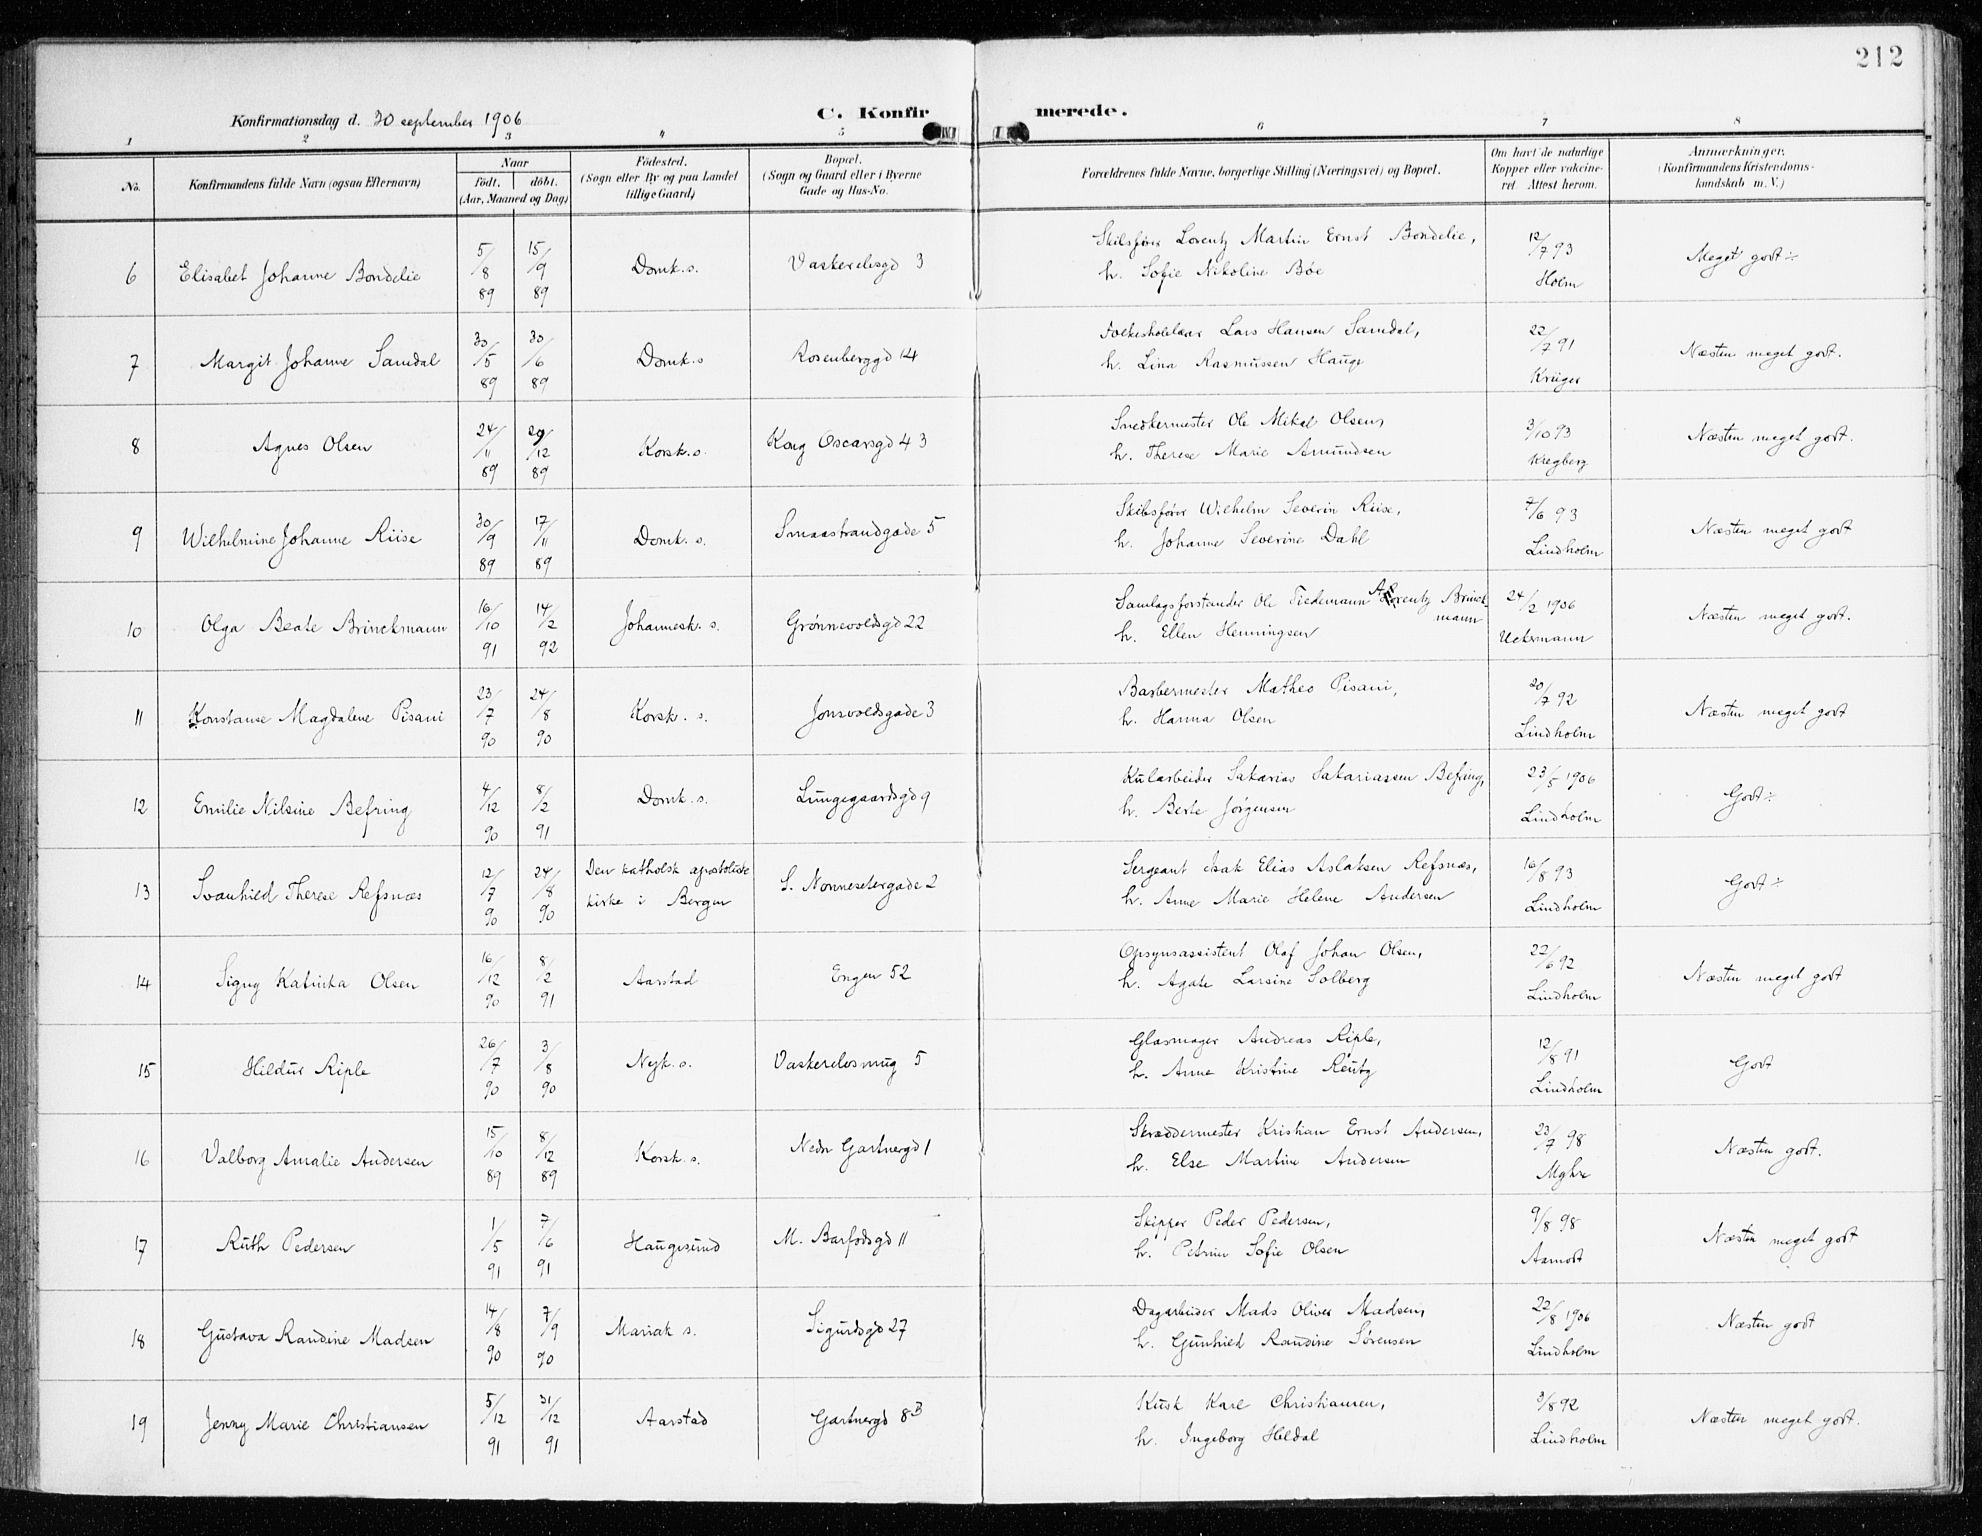 212
Konfirmationsdag d. 30 september 1906
C. Konfirmerede.
1 2 3 4 5 6 7 8
No.
Konfirmandens fulde Navn (ogsaa Efternavn)
Naar
födt. döbt.
(Aar, Maaned og Dag)
Födested.
(Sogn eller By og paa Landet
tillige Gaard)
Bopæl.
(Sogn og Gaard eller i Byerne
Gade og Hus-No.
Forældrenes fulde Navne, borgerlige Stilling (Næringsvei) og Bopæl.
Om havt de naturlige
Kopper eller vakcine-
ret Attest herom.
Anmærkninger.
(Konfirmandens Kristendoms-
kundskab m. V.)
6 Elisabet Johanne Bondelie 5/8 89 15/9 89 Domk. s. Vaskerelvsgd 3
Skibsfører Lorentz Martin Ernst Bondelie,
h. Sofie Nikoline Bøe
12/7 93
Holm
Meget godt ÷
7 Margit Johanne Samdal 30/5 89 30/6 89 Domk. s Rosenberggd 14
Folkeskolelærer Lars Hansen Samdal,
h. Lina Rasmussen Hauge
22/7 91
Krüger
Næsten meget godt.
8 Agnes Olsen 24/11 89 29/12 89 Korsk. s. Kong Oscarsgd 43
Snedkermester Ole Mikal Olsen,
h. Therese Marie Amundsen
3/10 93
Kregberg
Næsten meget godt.
9 Wilhelmine Johanne Riise 30/9 89 17/11 89 Domk. s. Smaastrandgade 5
Skibsfører Wilhelm Severin Riise,
h. Johanne Severine Dahl
7/6 93
Lindholm
Næsten meget godt
10 Olga Beate Brinckmann 16/10 91 14/2 92 Johannesk. s. Grønnevoldsgd 22
Samlagsforstander Ole Tiedemann Lorentz Brinck
mann
h. Ellen Henningsen
24/2 1906
Uckermann
Næsten meget godt.
11 Konstanse Magdalene Pisani 23/7 90 24/8 90 Korsk. s. Jonsvoldsgade 3
Barbermester Matheo Pisani,
h. Hanna Olsen
20/7 92
Lindholm
Næsten meget godt
12 Emilie Nilsine Befring 4/12 90 8/2 91 Domk. s. Lungegaardsgd 9
Kularbeider Sakarias Sakariassen Befring,
h. Berte Jørgensen
23/5 1906
Lindholm
Godt ÷
13 Svanhild Therese Refsnæs 12/7 90 24/8 90 Den katholsk apostoliske
kirke i Bergen
S. Nonnesetergade 2
Sergeant Isak Elias Aslaksen Refsnæs,
h. Anne Marie Helene Andersen
16/8 93
Lindholm
Godt ÷
14 Signy Katinka Olsen 16/12 90 8/2 91 Aarstad Engen 52
Opsynsassistent Olaf Johan Olsen,
h. Agate Larsine Solberg
22/6 92
Lindholm
Næsten meget godt
15 Hildur Riple 26/7 90 3/8 90 Nyk. s. Vaskerelvsmug 5
Glasmager Andreas Riple,
h. Anne Kristine Reutz
12/8 91
Lindholm
Godt
16 Valborg Amalie Andersen 15/10 89 8/12 89 Korsk. s. Nedre Gartnergd 1
Skræddermester Kristian Ernst Andersen,
h. Else Martine Andersen
23/7 98
Myhre
Næsten godt.
17 Ruth Pedersen 1/5 91 7/6 91 Haugesund M. Barfodsgd 11
Skipper Peder Pedersen,
h. Petrine Sofie Olsen
9/8 98
Aamodt
Næsten meget godt
18 Gustava Randine Madsen 14/8 90 7/9 90 Mariak s. Sigurdsgd 27
Dagarbeider Mads Oliver Madsen,
h. Gunhild Randine Sørensen
22/8 1906
Lindholm
Næsten godt
19 Jenny Marie Christiansen 5/12 91 31/12 91 Aarstad Gartnergd 8B
Kusk Karl Christiansen,
h. Ingeborg Hildal
9/8 92
Lindholm
Næsten meget godt.